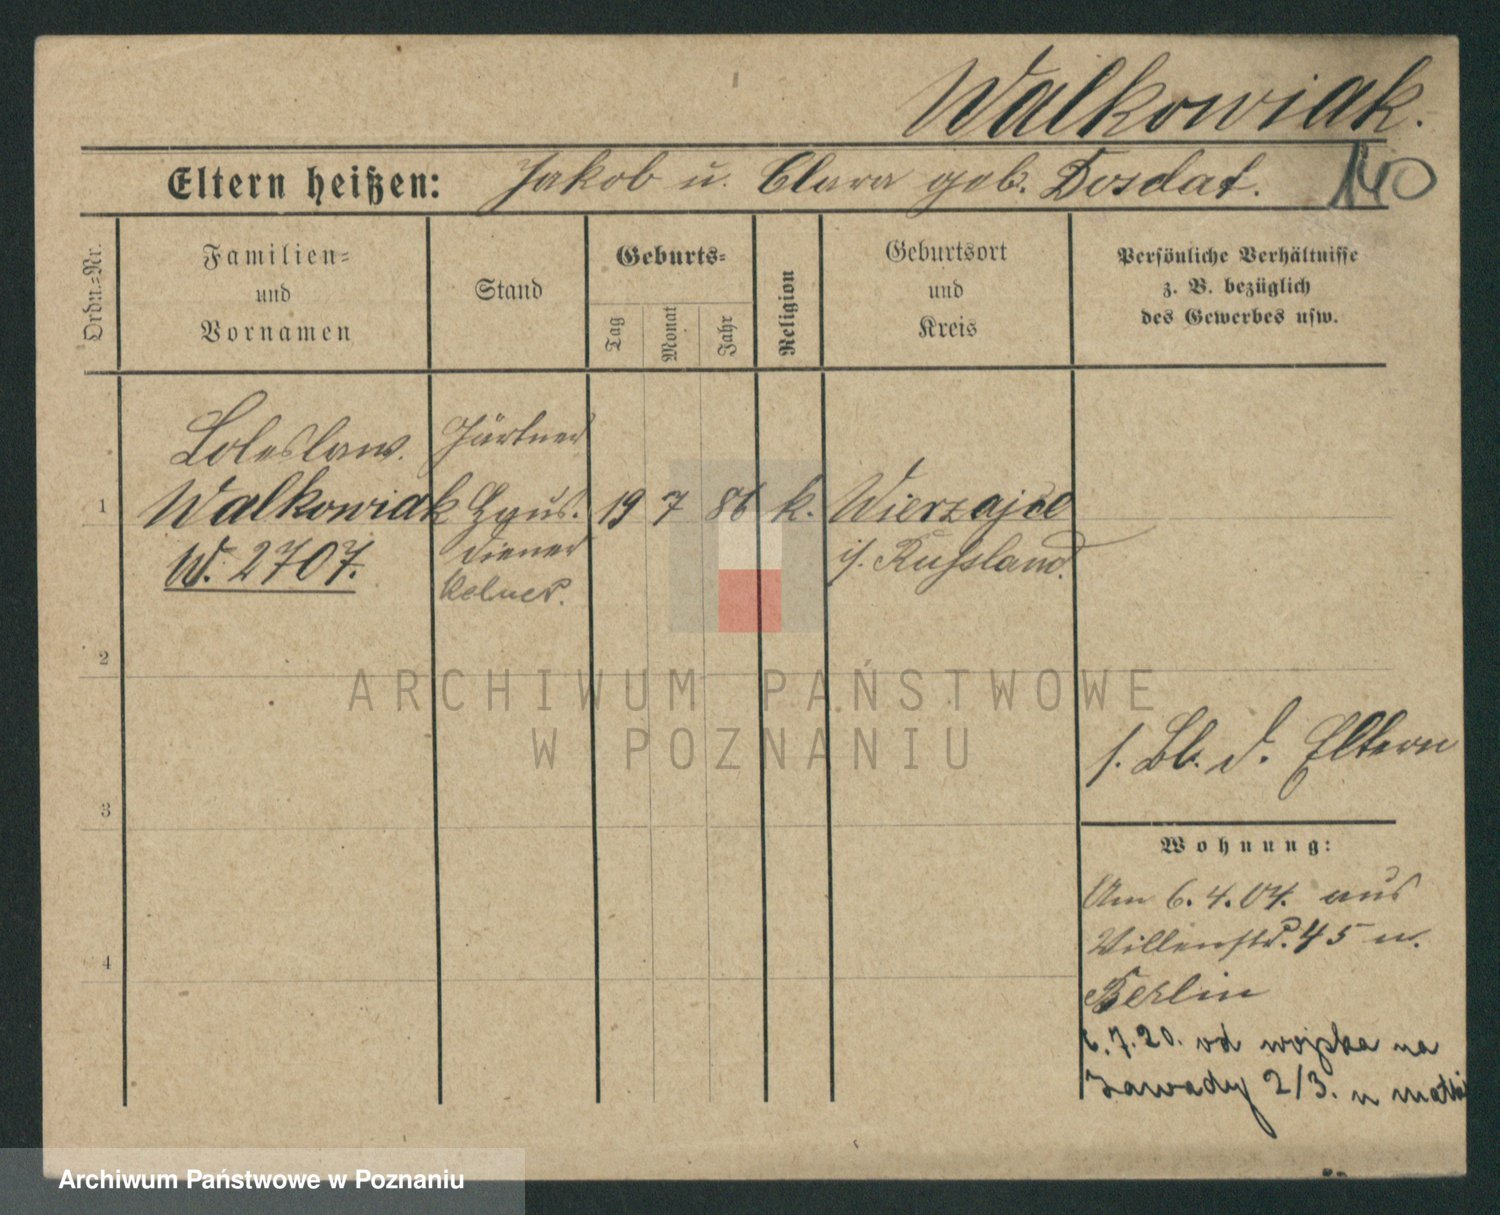 Walkowiak.
Eltern heißen: Jakob u. Clara geb. Dosdat.
140
Ordn.-Nr.
Familien-
und
Vornamen
Stand
Geburts-
Tag
Monat
Jahr
Religion
Geburtsort
und
Kreis
Persönliche Verhältnisse
z. B. bezüglich
des Gewerbes usw.
Boleslaw. Gärtner
1 Walkowiak Haus- 19 7 86 k.
W. 2707. diener i/ Russland.
Kelner.
2
3
4
s. Bl. d. Eltern
Wohnung:
Am 6.4.04. aus
Villenstr. 45 n.
Berlin
6.7.20. od wojska na
Zawady 2/3. u matki
ARCHIWUM PAŃSTWOWE
W POZNANIU
Archiwum Państwowe w Poznaniu